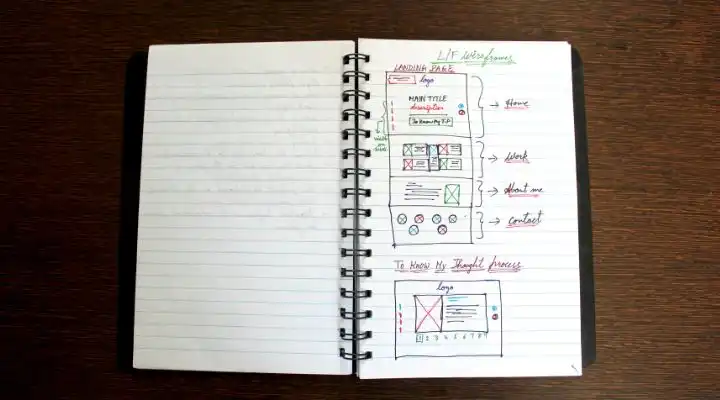 L/F Wireframes
LANDING PAGE
logo
MAIN TITLE
description
To Know My T.P
Home
Work
About me
Contact
To Know My Thought process
logo
1 2 3 4 5 6 7 8 9